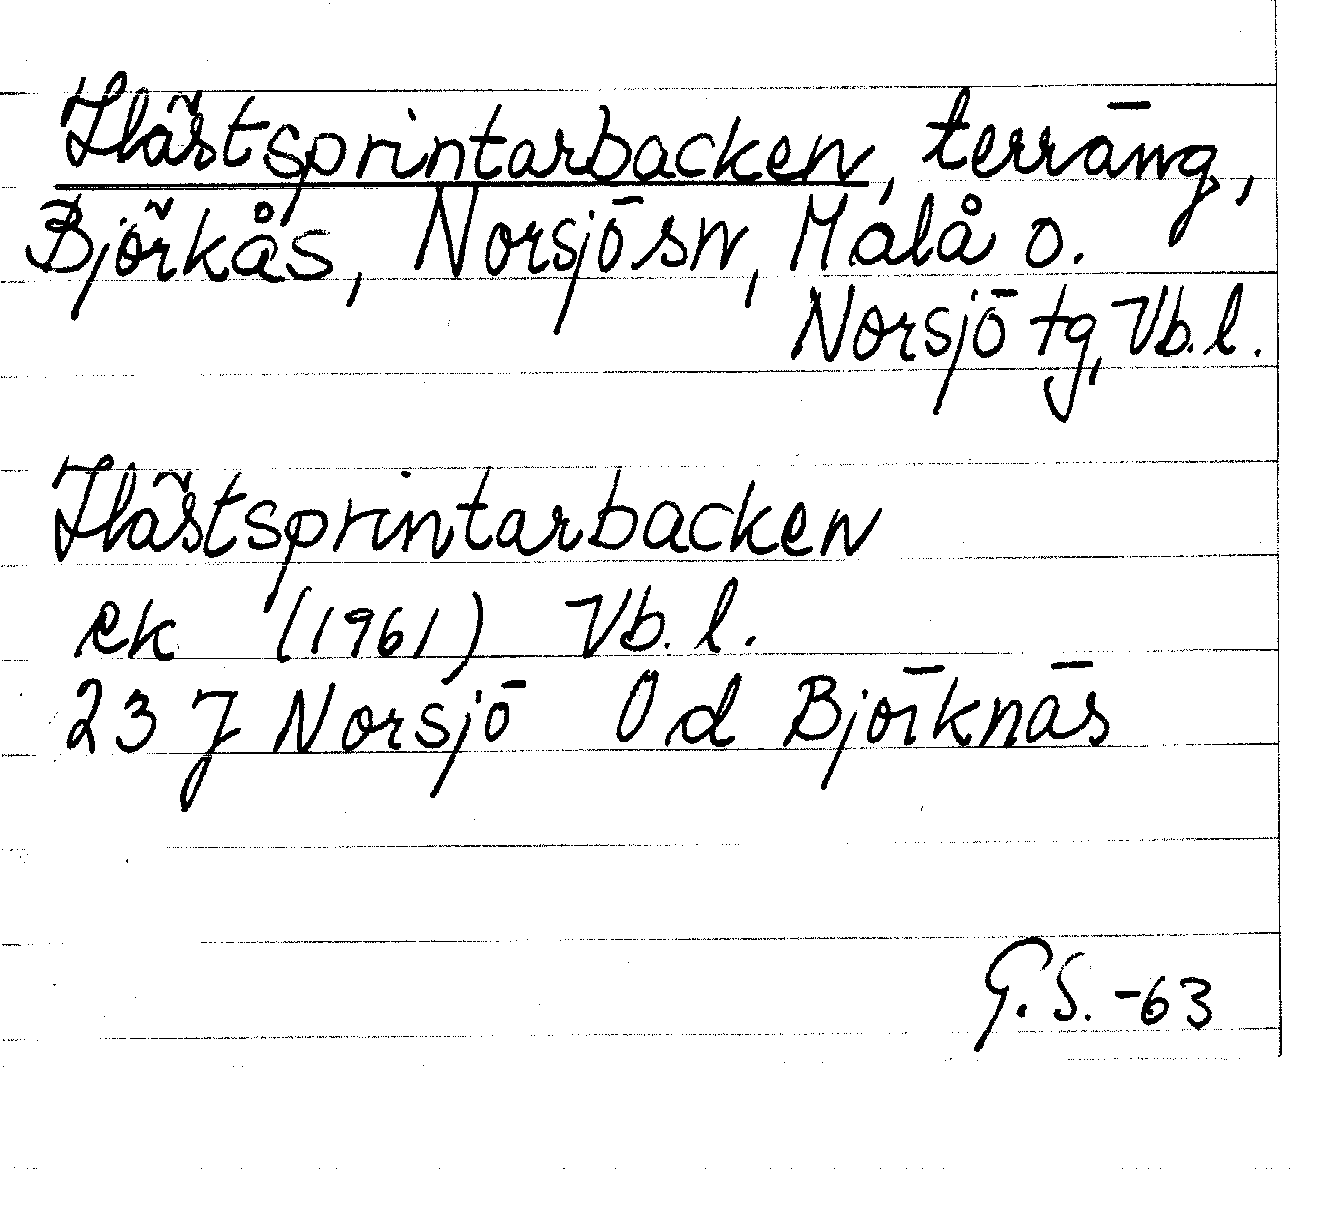 Hästsprintarbacken, terräng,
Björkås, Norsjö sn, Malå o.
Norsjö tg, Vb. l.
Hästsprintarbacken
ek (1961) Vb. l.
23 J Norsjö 0 d Björknäs
G.S. -63